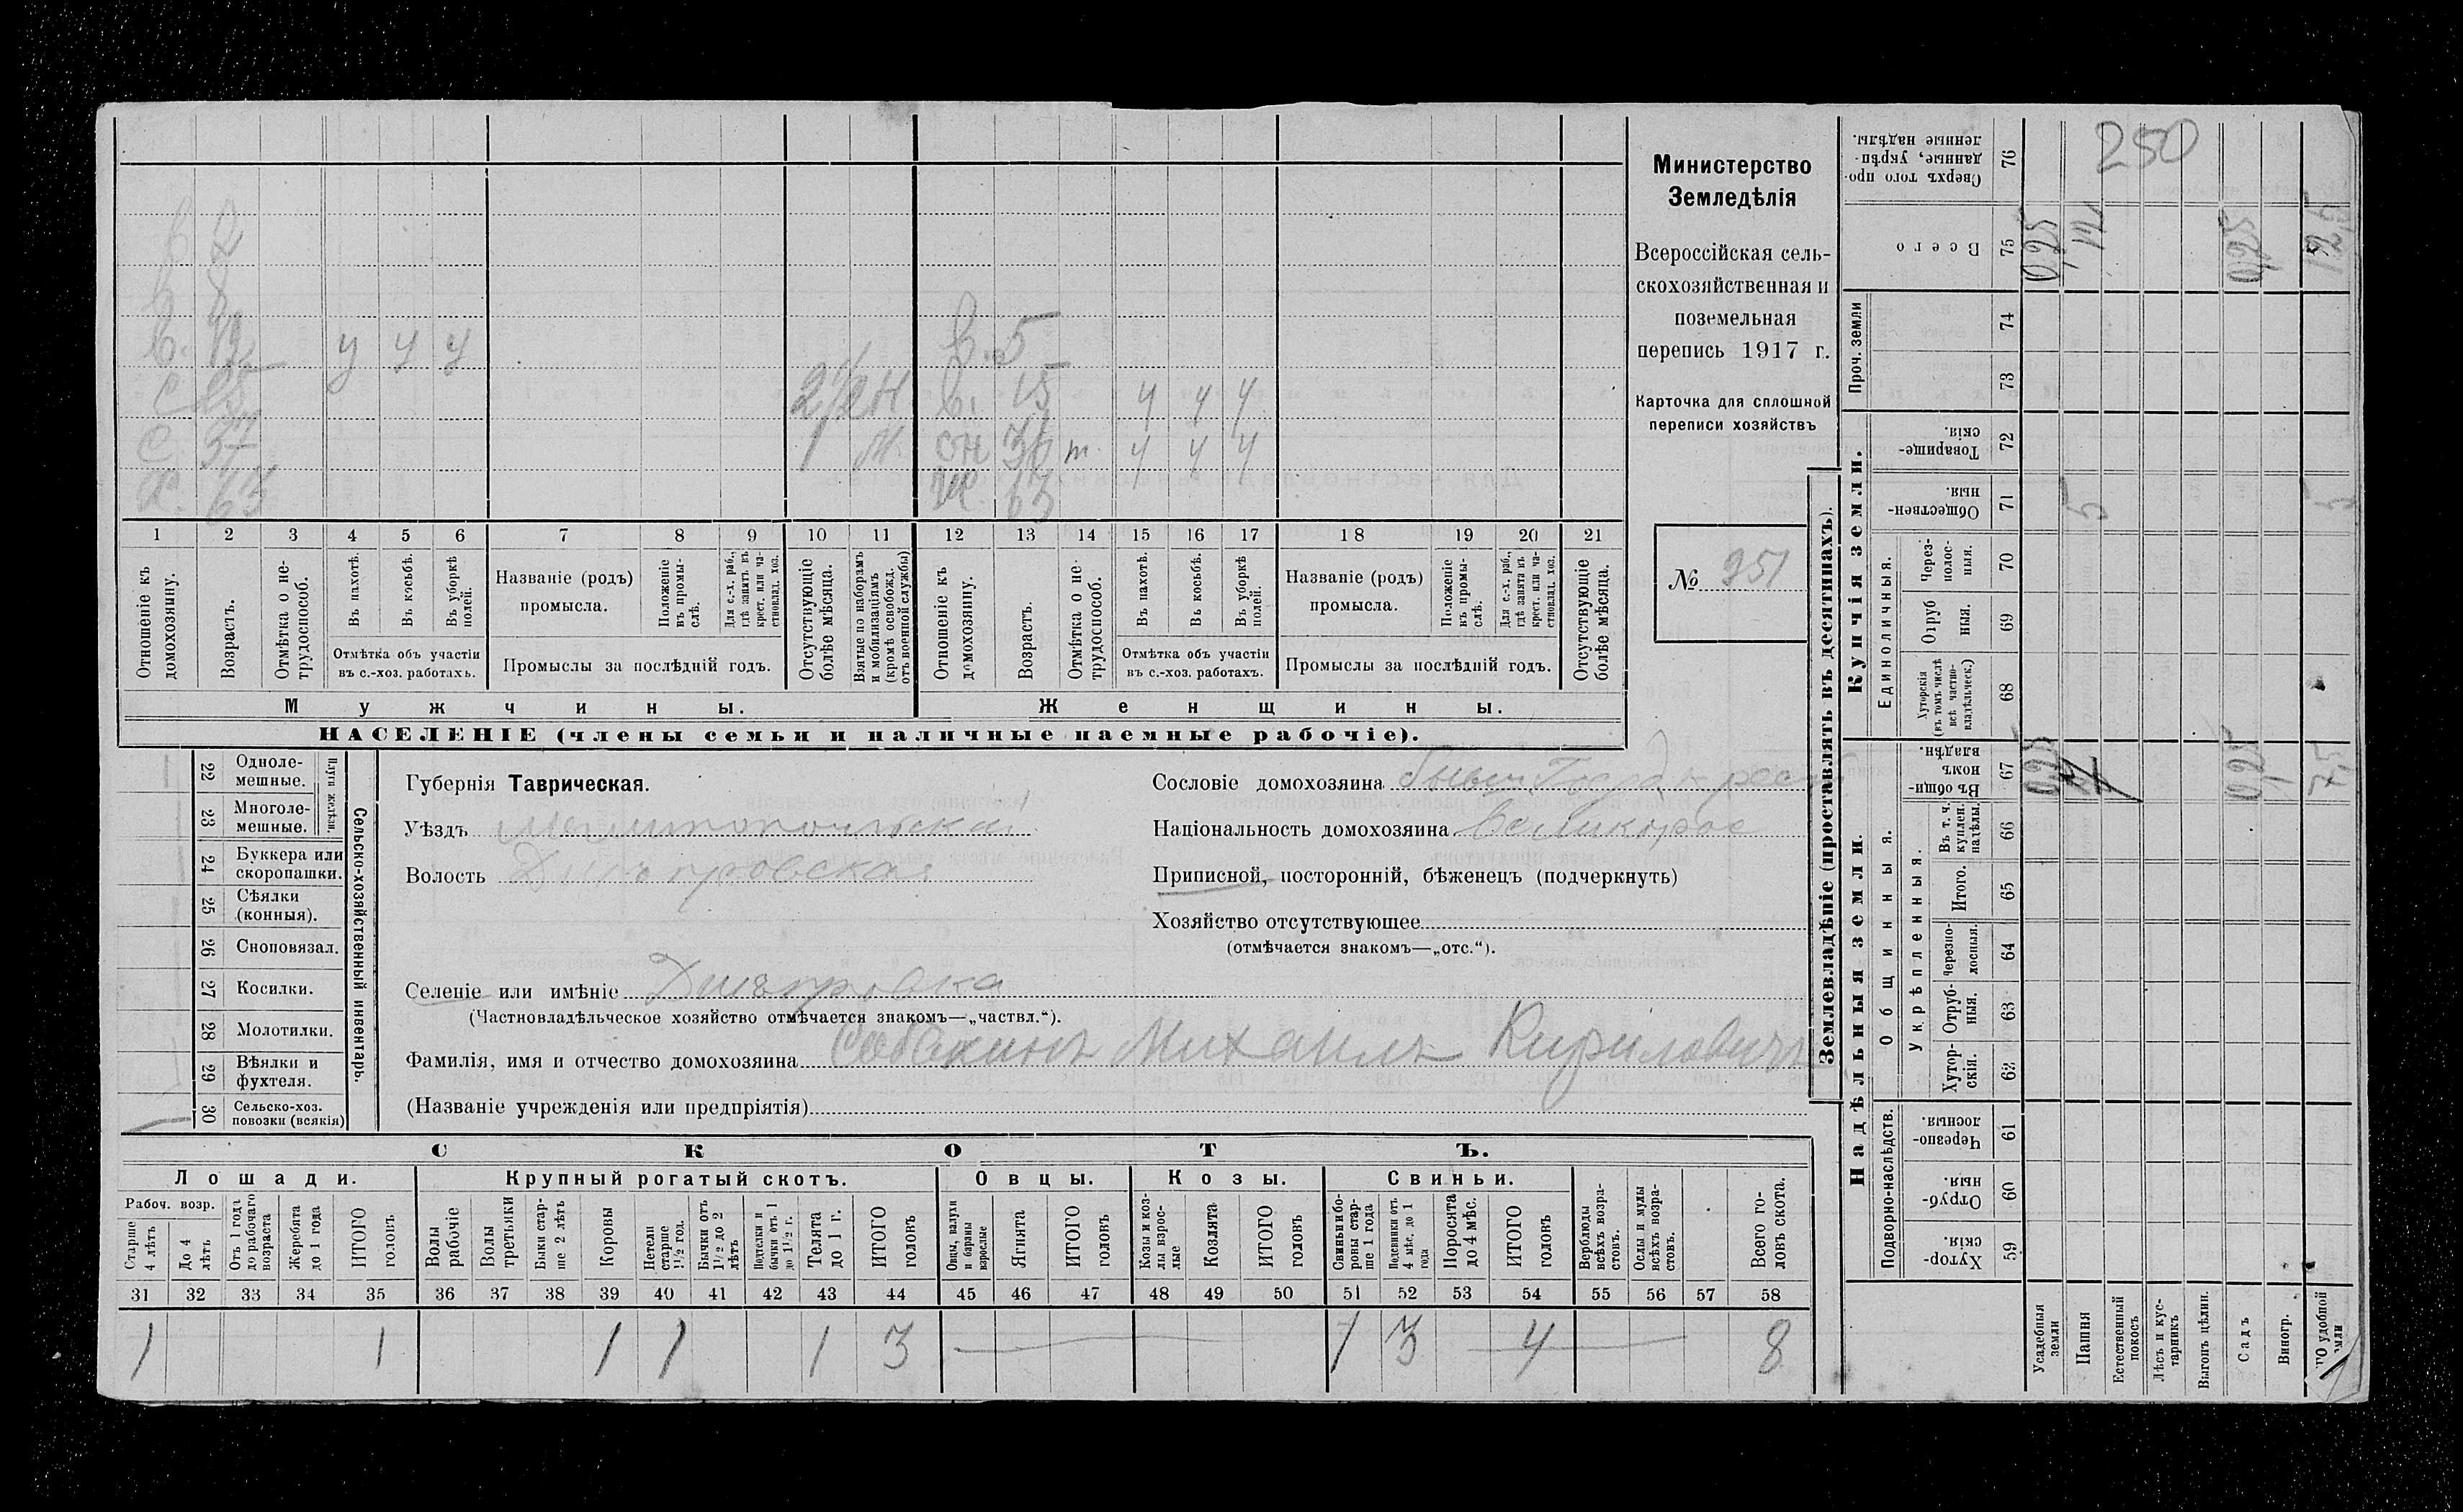 Министерство
Земледѣлія
Всероссійская сель-
скохозяйственная и
поземельная
перепись 1917 г.
Карточка для сплошной
переписи хозяйствъ
№ 351
в 2
в 8
в. 12 у у у в. 5
с 2 1/2 н в. 15 ч ч ч
с 37 1 сн 36 т. ч ч ч
х. 63 ж. 63
1 2 3 4 5 6 7 8 9 10 11 12 13 14 15 16 17 18 19 20 21
Отношеніе къ домохозяину.
Возрастъ.
Отмѣтка о не-трудоспособ.
Въ пахотѣ.
Въ косьбѣ.
Въ уборкѣ полей.
Отмѣтка объ участіи
въ с.-хоз. работахъ.
Названіе (родъ)
промысла.
Положеніе въ промы-слѣ.
Для с.-х. раб., гдѣ занятъ въ крест. или ча-стновлад. хоз.
Промыслы за послѣдній годъ.
Отсутствующіе болѣе мѣсяца.
Взятые по наборамъ и мобилизаціямъ (кромѣ освобожд. отъ военной службы)
Отношеніе къ домохозяину.
Возрастъ.
Отмѣтка о не-трудоспособ.
Въ пахотѣ.
Въ косьбѣ.
Въ уборкѣ полей.
Отмѣтка объ участіи
въ с.-хоз. работахъ.
Названіе (родъ)
промысла.
Положеніе въ промы-слѣ.
Для с.-х. раб., гдѣ занята въ крест. или ча-стновлад. хоз.
Промыслы за послѣдній годъ.
Отсутствующіе болѣе мѣсяца.
Мужчины. Женщины.
НАСЕЛЕНІЕ (члены семьи и наличные наемные рабочіе).
Сельско-хозяйственный инвентарь.
Плуги желѣзн.
22 Однолемешные.
23 Многолемешные.
24 Буккера или скоропашки.
25 Сѣялки (конныя).
26 Сноповязал.
27 Косилки.
28 Молотилки.
29 Вѣялки и фухтеля.
30 Сельско-хоз. повозки (всякія)
Губернія Таврическая.
Уѣздъ Мелитопольскій
Волость Днѣпровская
Селеніе или имѣніе Днѣпровка
(Частновладѣльческое хозяйство отмѣчается знакомъ—„частвл.“).
Фамилія, имя и отчество домохозяина Собакинъ Михаилъ Кириловичъ
(Названіе учрежденія или предпріятія)
Сословіе домохозяина бывш Госуд крест
Національность домохозяина Великорос
Приписной, посторонній, бѣженецъ (подчеркнуть)
Хозяйство отсутствующее
(отмѣчается знакомъ—„отс.“).
СКОТЪ.
Лошади. Крупный рогатый скотъ. Овцы. Козы. Свиньи.
Рабоч. возр.
Старше 4 лѣтъ
До 4 лѣтъ
Отъ 1 года до рабочаго возраста
Жеребята до 1 года
ИТОГО головъ
Волы рабочіе
Волы третьяки
Быки стар-ше 2 лѣтъ
Коровы
Нетели старше 1½ год.
Бычки отъ 1½ до 2 лѣтъ
Подтелки и бычки отъ 1 до 1½ г.
Телята до 1 г.
ИТОГО головъ
Овцы, валухи и бараны взрослые
Ягнята
ИТОГО головъ
Козы и коз-лы взрос-лые
Козлята
ИТОГО головъ
Свиньи и бо-ровы стар-ше 1 года
Подсвинки отъ 4 мѣс. до 1 года
Поросята до 4 мѣс.
ИТОГО головъ
Верблюды всѣхъ возра-стовъ.
Ослы и мулы всѣхъ возра-стовъ.
Всего го-ловъ скота.
31 32 33 34 35 36 37 38 39 40 41 42 43 44 45 46 47 48 49 50 51 52 53 54 55 56 57 58
1 1 1 1 1 3 1 3 4 8
Землевладѣніе (проставлять въ десятинахъ).
Надѣльныя земли. Купчія земли. Проч. земли
Подворно-наслѣдств.
Общинныя.
Укрѣпленныя.
Единоличныя.
Сверхъ того про-данные, укрѣп-ленные надѣлы. 76 250
Всего 75 0,25 12 0,25 12,5
74
73
Товарище-скія. 72
Обществен-ныя. 71 5 5
Через-полос-ныя. 70
Отруб ныя. 69
Хуторскія (въ томъ числѣ всѣ частно-владѣльческ.) 68
Въ общи-номъ владѣн. 67 0,25 7 0,25 7,5
Въ т. ч. куплен. надѣлы. 66
Итого. 65
Черезпо-лосныя. 64
Отруб-ныя. 63
Хутор-скія. 62
Черезпо-лосныя. 61
Отруб-ныя. 60
Хутор-скія. 59
Усадебныя земли
Пашня
Естественный покосъ
Лѣсъ и кус-тарникъ
Выгонъ цѣлин.
Садъ
Виногр.
удобной